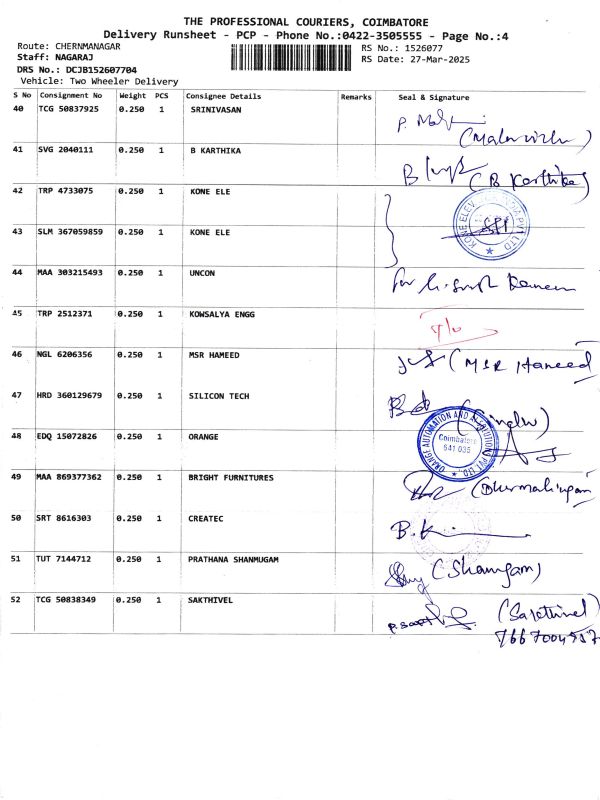 THE PROFESSIONAL COURIERS, COIMBATORE
Delivery Runsheet - PCP - Phone No.:0422-3505555 - Page No.:4
Route: CHERNMANAGAR
RS No.: 1526077
Staff: NAGARAJ
RS Date: 27-Mar-2025
DRS No.: DCJB152607704
Vehicle: Two Wheeler Delivery
S No Consignment No Weight PCS Consignee Details Remarks Seal & Signature
40 TCG 50837925 0.250 1 SRINIVASAN
41 SVG 2040111 0.250 1 B KARTHIKA
(B Karthika)
42 TRP 4733075 0.250 1 KONE ELE
43 SLM 367059859 0.250 1 KONE ELE
44 MAA 303215493 0.250 1 UNCON
45 TRP 2512371 0.250 1 KOWSALYA ENGG
46 NGL 6206356 0.250 1 MSR HAMEED
(MSR Hameed
47 HRD 360129679 0.250 1 SILICON TECH
48 EDQ 15072826 0.250 1 ORANGE
ORANGE AUTOMATION AND SOLUTIONS PVT LTD
Coimbatore
641 035
49 MAA 869377362 0.250 1 BRIGHT FURNITURES
50 SRT 8616303 0.250 1 CREATEC
51 TUT 7144712 0.250 1 PRATHANA SHANMUGAM
52 TCG 50838349 0.250 1 SAKTHIVEL
(Sakthivel)